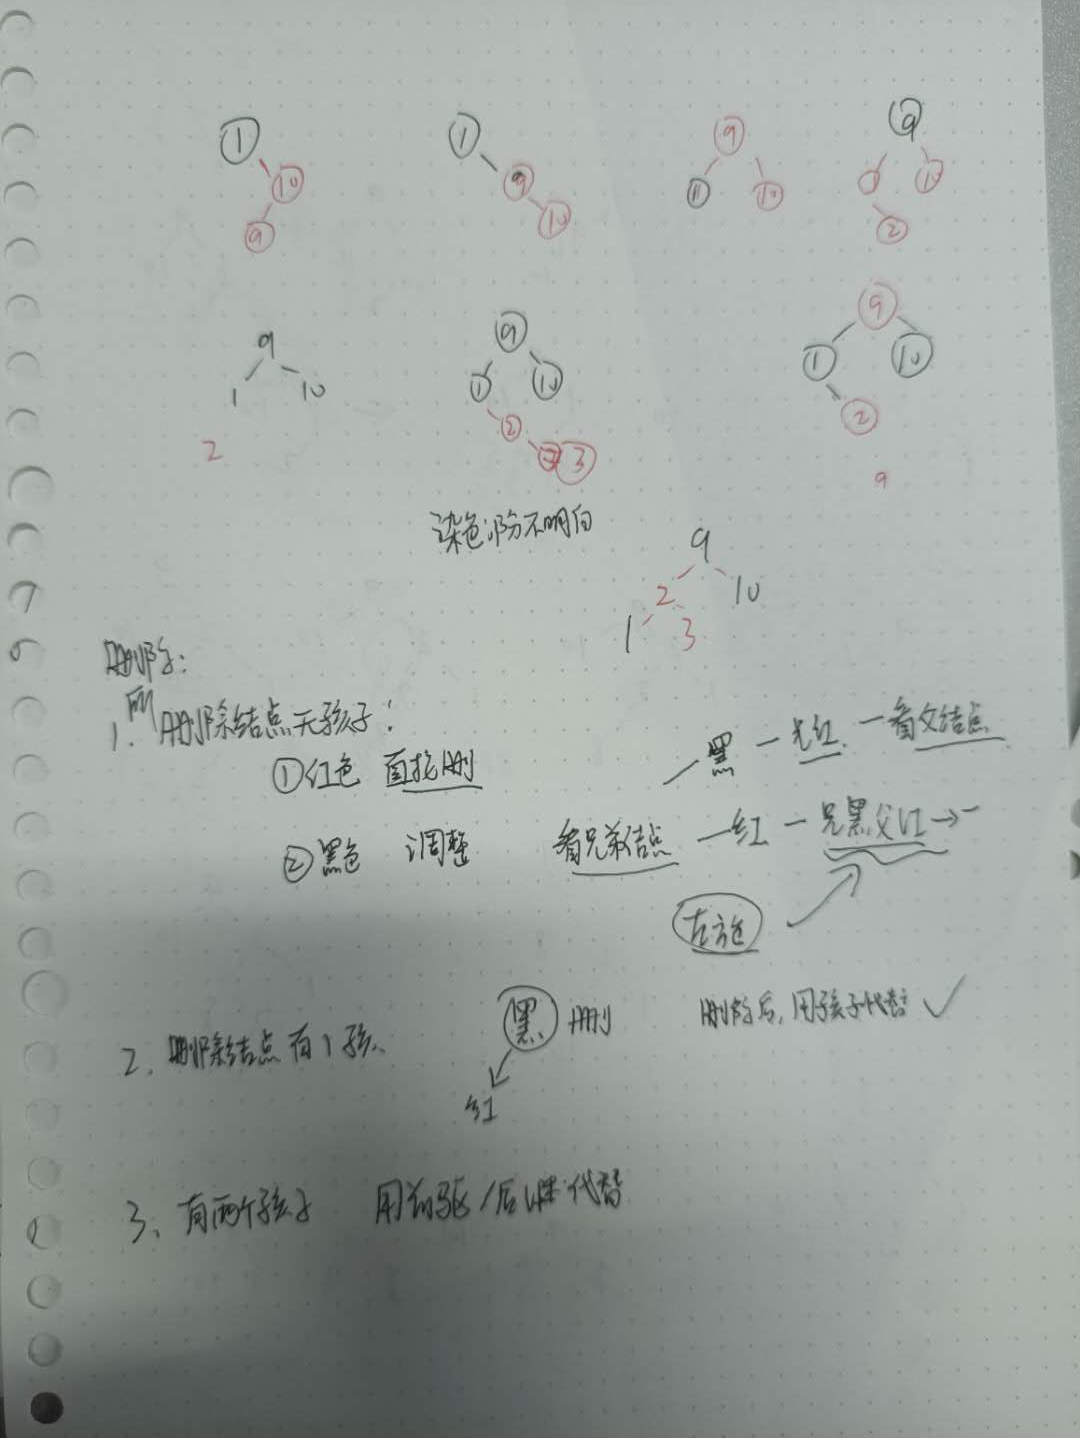 1 1 9 9
10 9 11 10 10
9 10 2
9 9 9
1 10 1 10 1 10
2 2 3 2
9
染色部分不明白
9
2 10
1 3
删除:
1. 所删除结点无孩子:
①红色 直接删
黑 一 无红 一看父结点
②黑色 调整 看兄弟结点 一红 一 兄黑父红→一
右旋
2. 删除结点有1孩. 黑 删 删除后, 用孩子代替 ✓
红
3. 有两个孩子 用前驱/后继代替